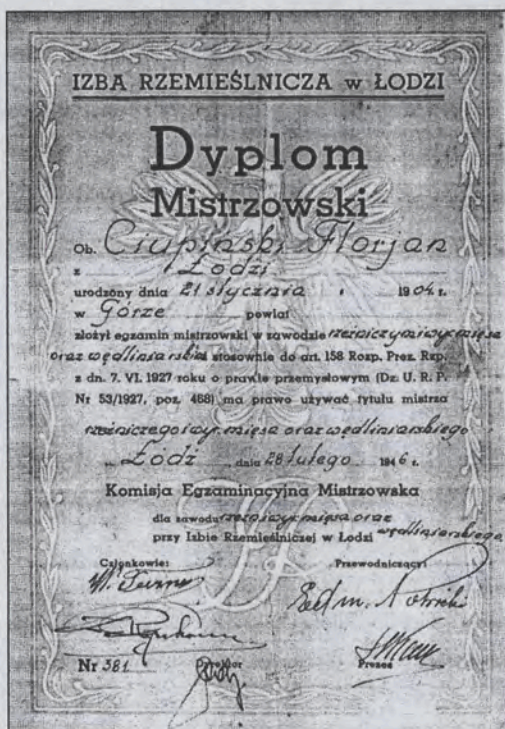 IZBA RZEMIEŚLNICZA w ŁODZI
Dyplom
Mistrzowski
Ob. Ciupiński Florjan
z Łodzi
urodzony dnia 21 stycznia 1904 r.
w Górze powiat
złożył egzamin mistrzowski w zawodzie rzeźniczym i wyr. mięsa
oraz wędliniarskim stosownie do art. 158 Rozp. Prez. Rzp.
z dn. 7. VI. 1927 roku o prawie przemysłowym (Dz. U. R. P.
Nr 53/1927, poz. 468) ma prawo używać tytułu mistrza
rzeźniczego i wyr. mięsa oraz wędliniarskiego
Łódź dnia 28 lutego 1946 r.
Komisja Egzaminacyjna Mistrzowska
dla zawodu rzeźn. i wyr. mięsa oraz
przy Izbie Rzemieślniczej w Łodzi wędliniarskiego
Członkowie: Przewodniczący:
Nr 381 Dyrektor Prezes